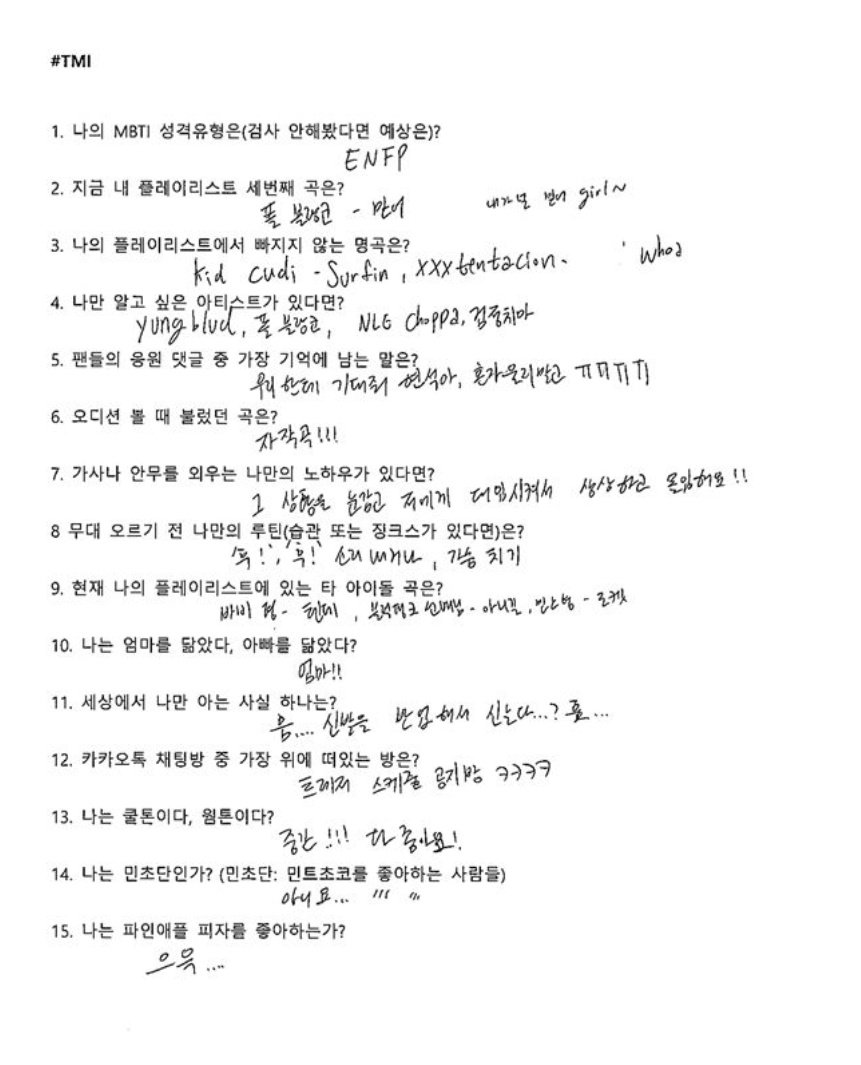 #TMI
1. 나의 MBTI 성격유형은(검사 안해봤다면 예상은)?
ENFP
2. 지금 내 플레이리스트 세번째 곡은?
폴 블랑코 - 만약 girl~
3. 나의 플레이리스트에서 빠지지 않는 명곡은?
kid cudi - Surfin, XXXtentacion - Whoa
4. 나만 알고 싶은 아티스트가 있다면?
yungblud, 폴 블랑코, NLE Choppa, 검정치마
5. 팬들의 응원 댓글 중 가장 기억에 남는 말은?
우리한테 기대줘 현석아, 혼자 울지말고 ㅠㅠㅠㅠ
6. 오디션 볼 때 불렀던 곡은?
자작곡!!!
7. 가사나 안무를 외우는 나만의 노하우가 있다면?
그 상황을 눈감고 저에게 대입시켜서 상상하고 몰입해요!!
8 무대 오르기 전 나만의 루틴(습관 또는 징크스가 있다면)은?
'후!', '후!' 소리내거나, 가슴 치기
9. 현재 나의 플레이리스트에 있는 타 아이돌 곡은?
바비 형 - 텐데, 블랙핑크 선배님 - 아니길, 민호형 - 로켓
10. 나는 엄마를 닮았다, 아빠를 닮았다?
엄마!!
11. 세상에서 나만 아는 사실 하나는?
음.... 신발을 반업해서 신는다...? 훗...
12. 카카오톡 채팅방 중 가장 위에 떠있는 방은?
트레저 스케줄 공지방 ㅋㅋㅋㅋ
13. 나는 쿨톤이다, 웜톤이다?
중간!!! 다 좋아요!
14. 나는 민초단인가? (민초단: 민트초코를 좋아하는 사람들)
아니요... ,,, ,,
15. 나는 파인애플 피자를 좋아하는가?
으윽....